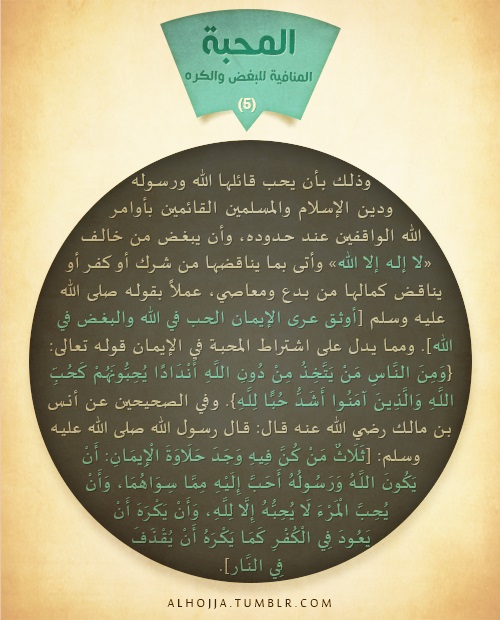 المحبة
المنافية للبغض والكره
(5)
وذلك بأن يحب قائلها الله ورسوله
ودين الإسلام والمسلمين القائمين بأوامر
الله الواقفين عند حدوده، وأن يبغض من خالف
«لا إله إلا الله» وأتى بما يناقضها من شرك أو كفر أو
يناقض كمالها من بدع ومعاصي، عملاً بقوله صلى الله
عليه وسلم [أوثق عرى الإيمان الحب في الله والبغض في
الله]. ومما يدل على اشتراط المحبة في الإيمان قوله تعالى:
{وَمِنَ النَّاسِ مَنْ يَتَّخِذُ مِنْ دُونِ اللَّهِ أَنْدَادًا يُحِبُّونَهُمْ كَحُبِّ
اللَّهِ وَالَّذِينَ آمَنُوا أَشَدُّ حُبًّا لِلَّهِ}. وفي الصحيحين عن أنس
بن مالك رضي الله عنه قال: قال رسول الله صلى الله عليه
وسلم: [ثَلَاثٌ مَنْ كُنَّ فِيهِ وَجَدَ حَلَاوَةَ الْإِيمَانِ: أَنْ
يَكُونَ اللَّهُ وَرَسُولُهُ أَحَبَّ إِلَيْهِ مِمَّا سِوَاهُمَا، وَأَنْ
يُحِبَّ الْمَرْءَ لَا يُحِبُّهُ إِلَّا لِلَّهِ، وَأَنْ يَكْرَهَ أَنْ
يَعُودَ فِي الْكُفْرِ كَمَا يَكْرَهُ أَنْ يُقْذَفَ
فِي النَّارِ].
ALHOJJA.TUMBLR.COM